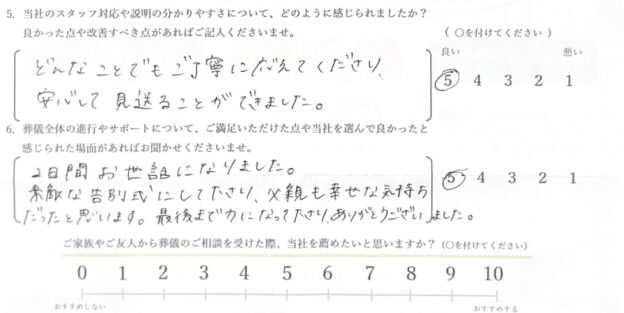 5. 当社のスタッフ対応や説明の分かりやすさについて、どのように感じられましたか？
良かった点や改善すべき点があればご記入くださいませ。
（ ○を付けてください ）
良い 悪い
どんなことでもご丁寧に応えてくださり、
安心して見送ることができました。
5 4 3 2 1
6. 葬儀全体の進行やサポートについて、ご満足いただけた点や当社を選んで良かったと
感じられた場面があればお聞かせくださいませ。
2日間お世話になりました。
素敵な告別式にしてくださり、父親も幸せな気持ち
だったと思います。最後まで力になってくださり、ありがとうございました。
5 4 3 2 1
ご家族やご友人から葬儀のご相談を受けた際、当社を薦めたいと思いますか？（○を付けてください）
0 1 2 3 4 5 6 7 8 9 10
おすすめしない おすすめする